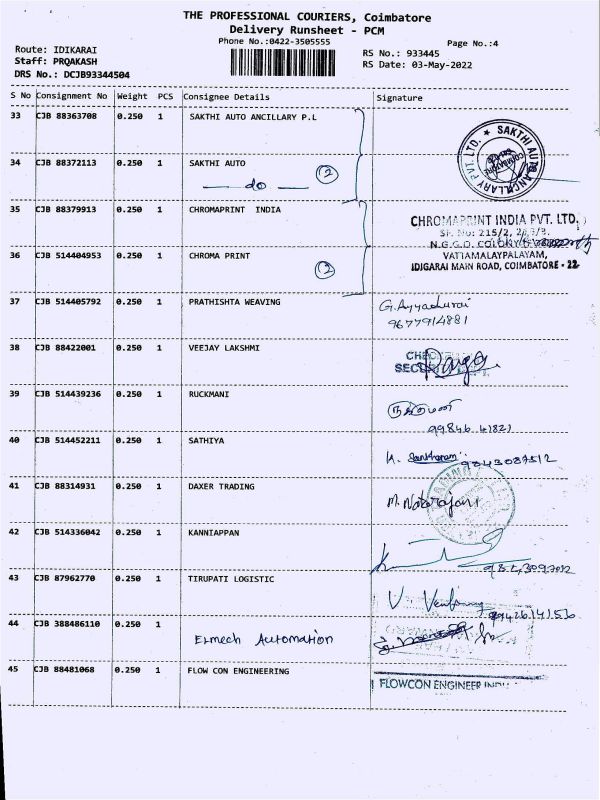 THE PROFESSIONAL COURIERS, Coimbatore
Delivery Runsheet - PCM
Phone No.:0422-3505555
Page No.:4
Route: IDIKARAI
Staff: PRQAKASH
DRS No.: DCJB93344504
RS No.: 933445
RS Date: 03-May-2022
S No Consignment No Weight PCS Consignee Details Signature
33 CJB 88363708 0.250 1 SAKTHI AUTO ANCILLARY P.L
SAKTHI AUTO ANCILLARY PVT. LTD. COIMBATORE
34 CJB 88372113 0.250 1 SAKTHI AUTO
do (2)
35 CJB 88379913 0.250 1 CHROMAPRINT INDIA
CHROMAPRINT INDIA PVT. LTD.
SF. No: 215/2,
N.G.G.O. COLONY
36 CJB 514404953 0.250 1 CHROMA PRINT (2)
VATTAMALAYPALAYAM,
IDIGARAI MAIN ROAD, COIMBATORE - 22
37 CJB 514405792 0.250 1 PRATHISHTA WEAVING
G. Ayyadurai
9677914881
38 CJB 88422001 0.250 1 VEEJAY LAKSHMI
39 CJB 514439236 0.250 1 RUCKMANI
ருக்மணி
99846 41821
40 CJB 514452211 0.250 1 SATHIYA
9843087512
41 CJB 88314931 0.250 1 DAXER TRADING
M. Natarajan
42 CJB 514336042 0.250 1 KANNIAPPAN
43 CJB 87962770 0.250 1 TIRUPATI LOGISTIC
44 CJB 388486110 0.250 1
Elmech Automation
45 CJB 88481068 0.250 1 FLOW CON ENGINEERING
FLOWCON ENGINEER